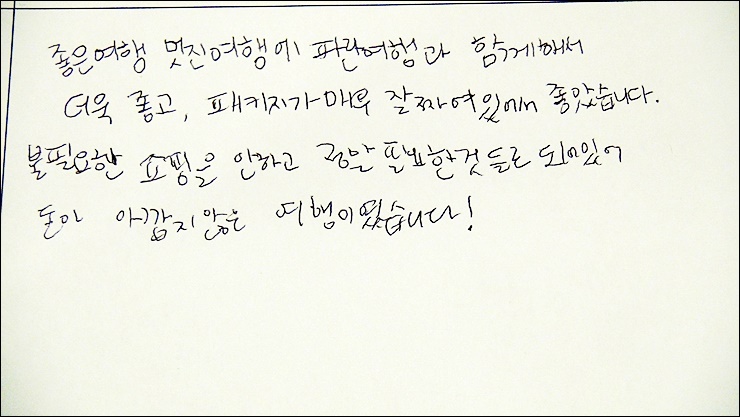 좋은여행 멋진여행에 파란여행과 함께해서
더욱 좋고, 패키지가 매우 잘짜여있어서 좋았습니다.
불필요한 쇼핑을 안하고 정말 필요한것들로 되어있어
돈이 아깝지않은 여행이였습니다!